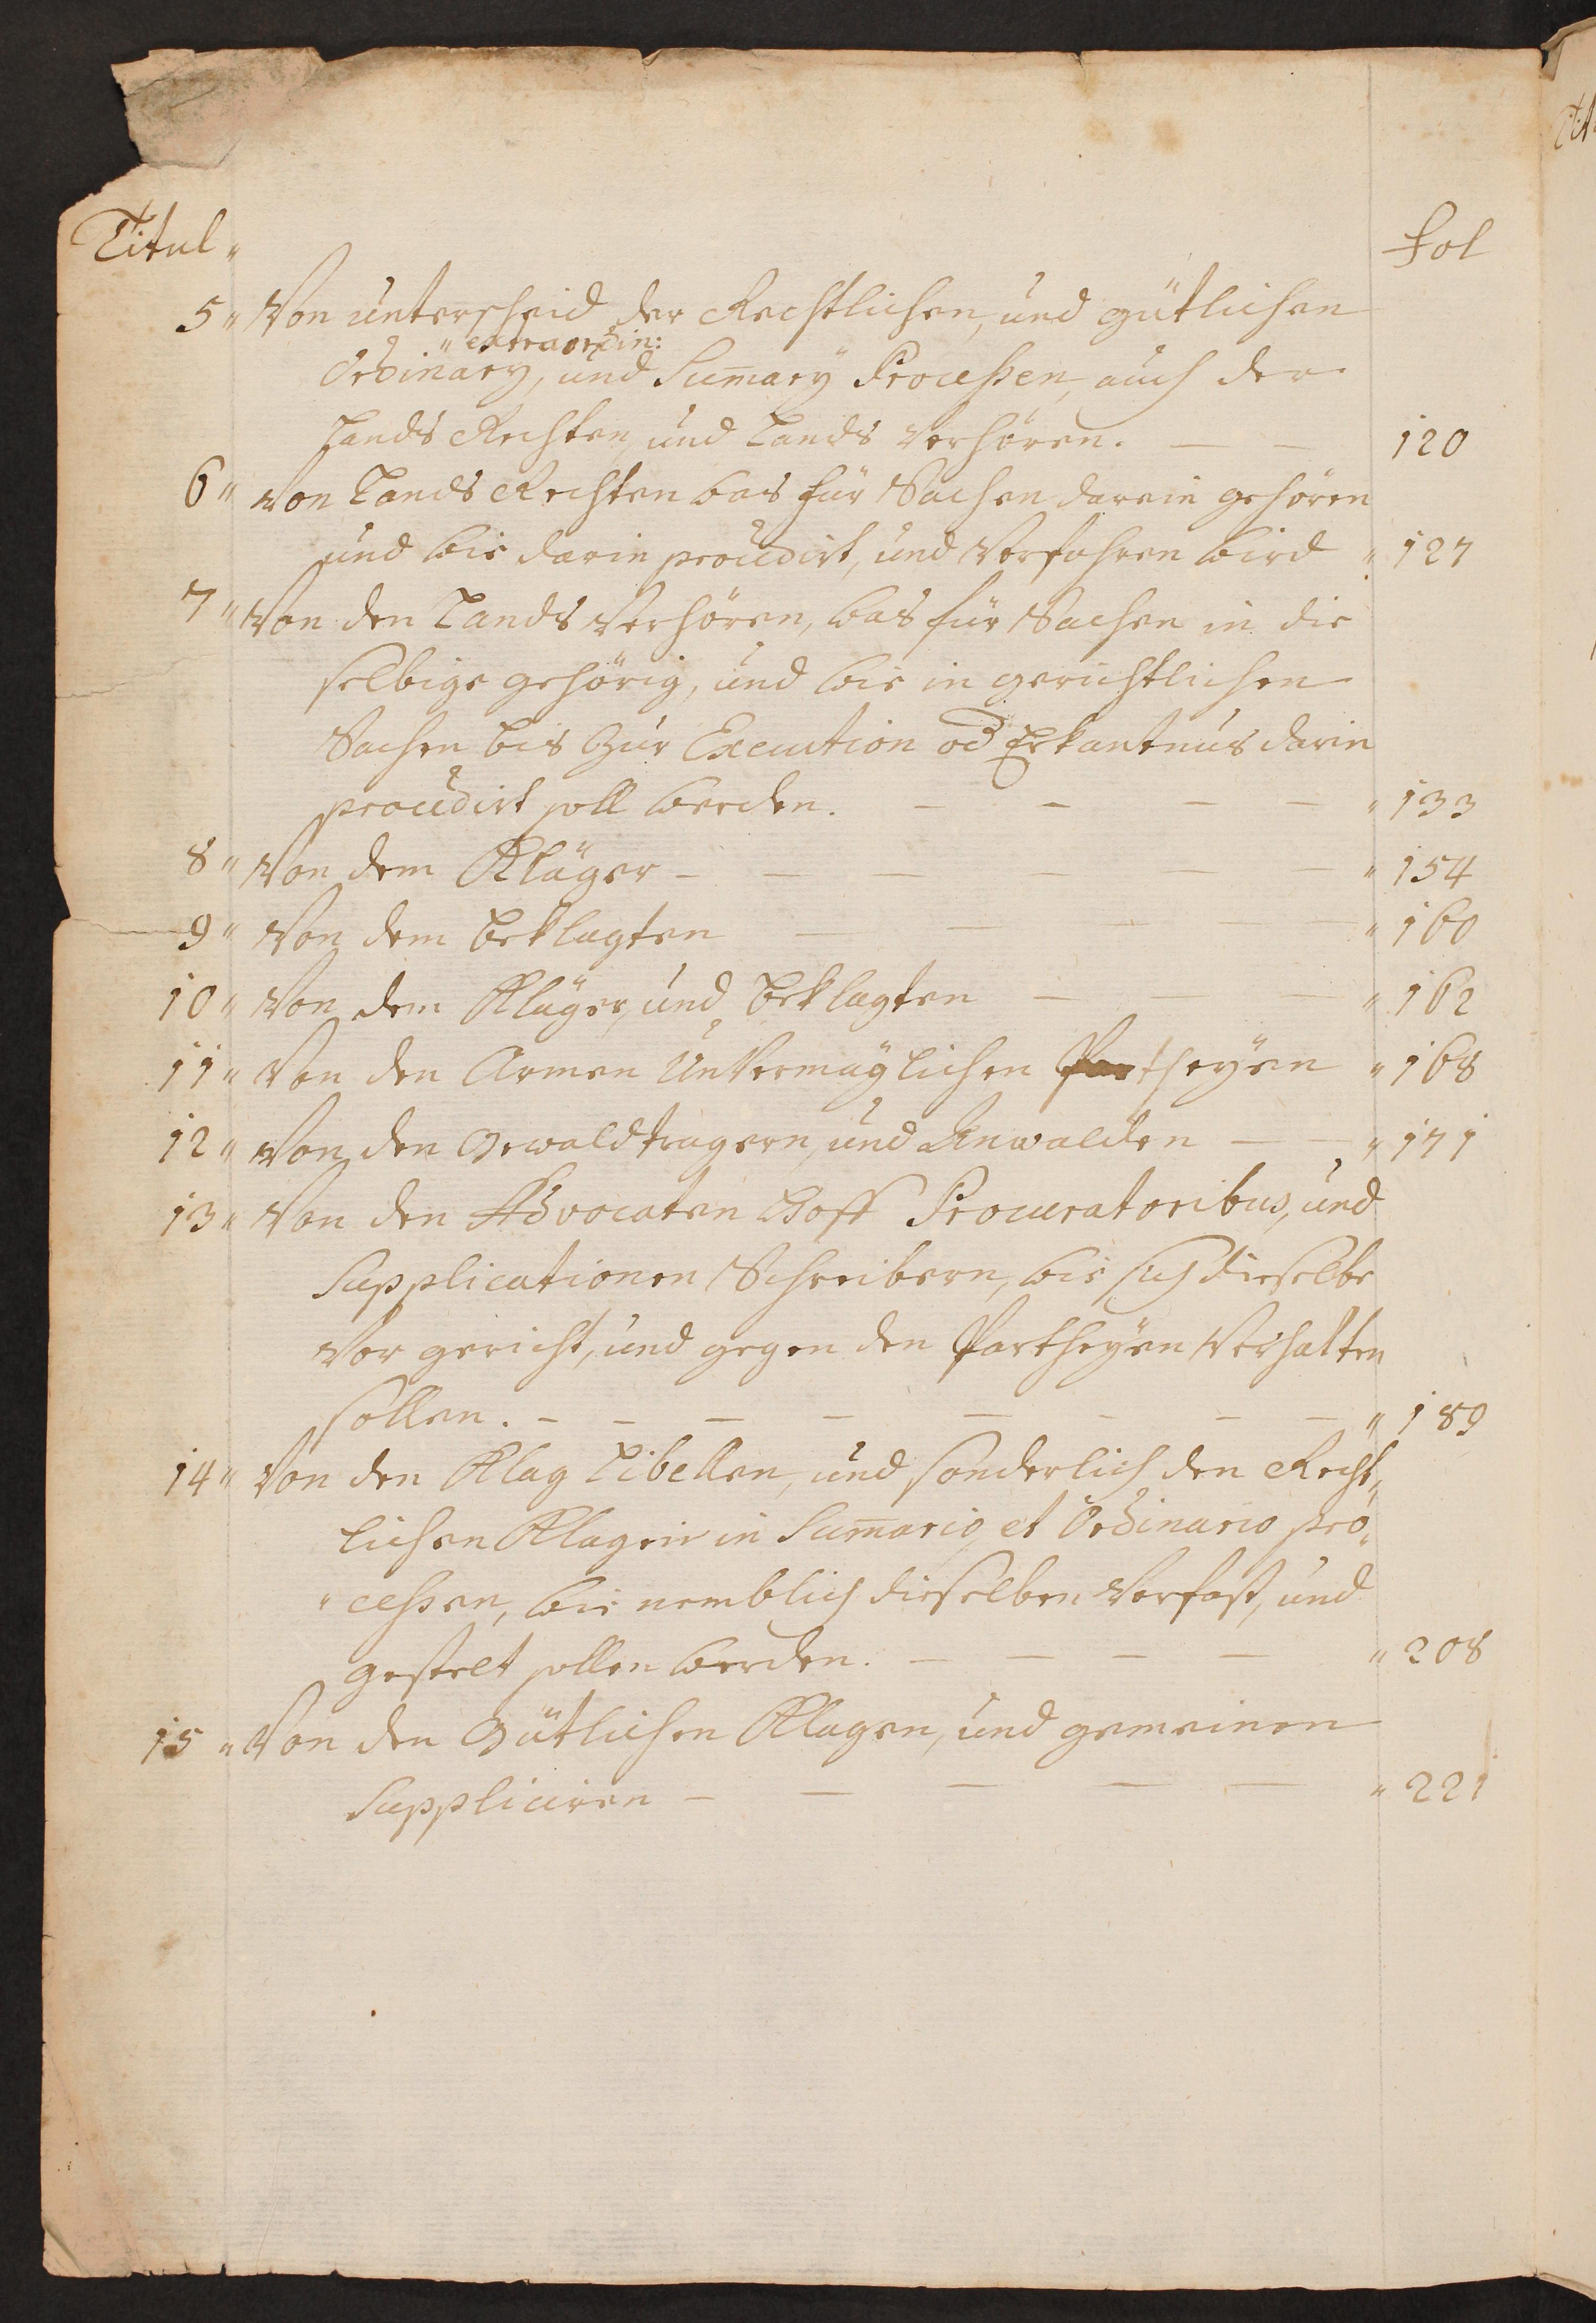 Titul" fol
5" Von unterscheid der Rechtlichen, und gütlichen
" extraordin:
Ordinary, und Sum̄ary Proceßen, auch der
Lands Rechten, und Lands Verhören. — — 120
6" Von Lands Rechten was für Sachen darein gehören
und wie darin procedirt, und Verfahren wird " 127
7" Von den Lands Verhören, was für Sachen in die
selbige gehörig, und wie in gerichtlichen
Sachen bis zur Execution od Erkantnus darin
procedirt soll werden. — — — — " 133
8" Von dem Kläger — — — — — — " 154
9" Von dem Beklagten — — — — " 160
10" Von dem Kläger, und Beklagten — — — " 162
11" Von den Armen Unvermöglichen Partheyen " 168
12" Von den Gewaldtragern, und Anwalden — — " 171
13" Von den Advocaten Hoff Procuratoribus, und
Supplicationen Schreibern, wie sich dieselbe
Vor gericht, und gegen den Partheyen Verhalten
sollen. — — — — — — — — " 189
14" Von den Klag Libellen, und sonderlich den Recht„
lichen Klagen in Sum̄ario, et Ordinario pro„
"ceßen, wie nemblich dieselben Verfast, und
gestelt sollen werden. — — — — " 208
15" Von den Gütlichen Klagen, und gemeinen
Suppliciren — — — — — " 221
Tit